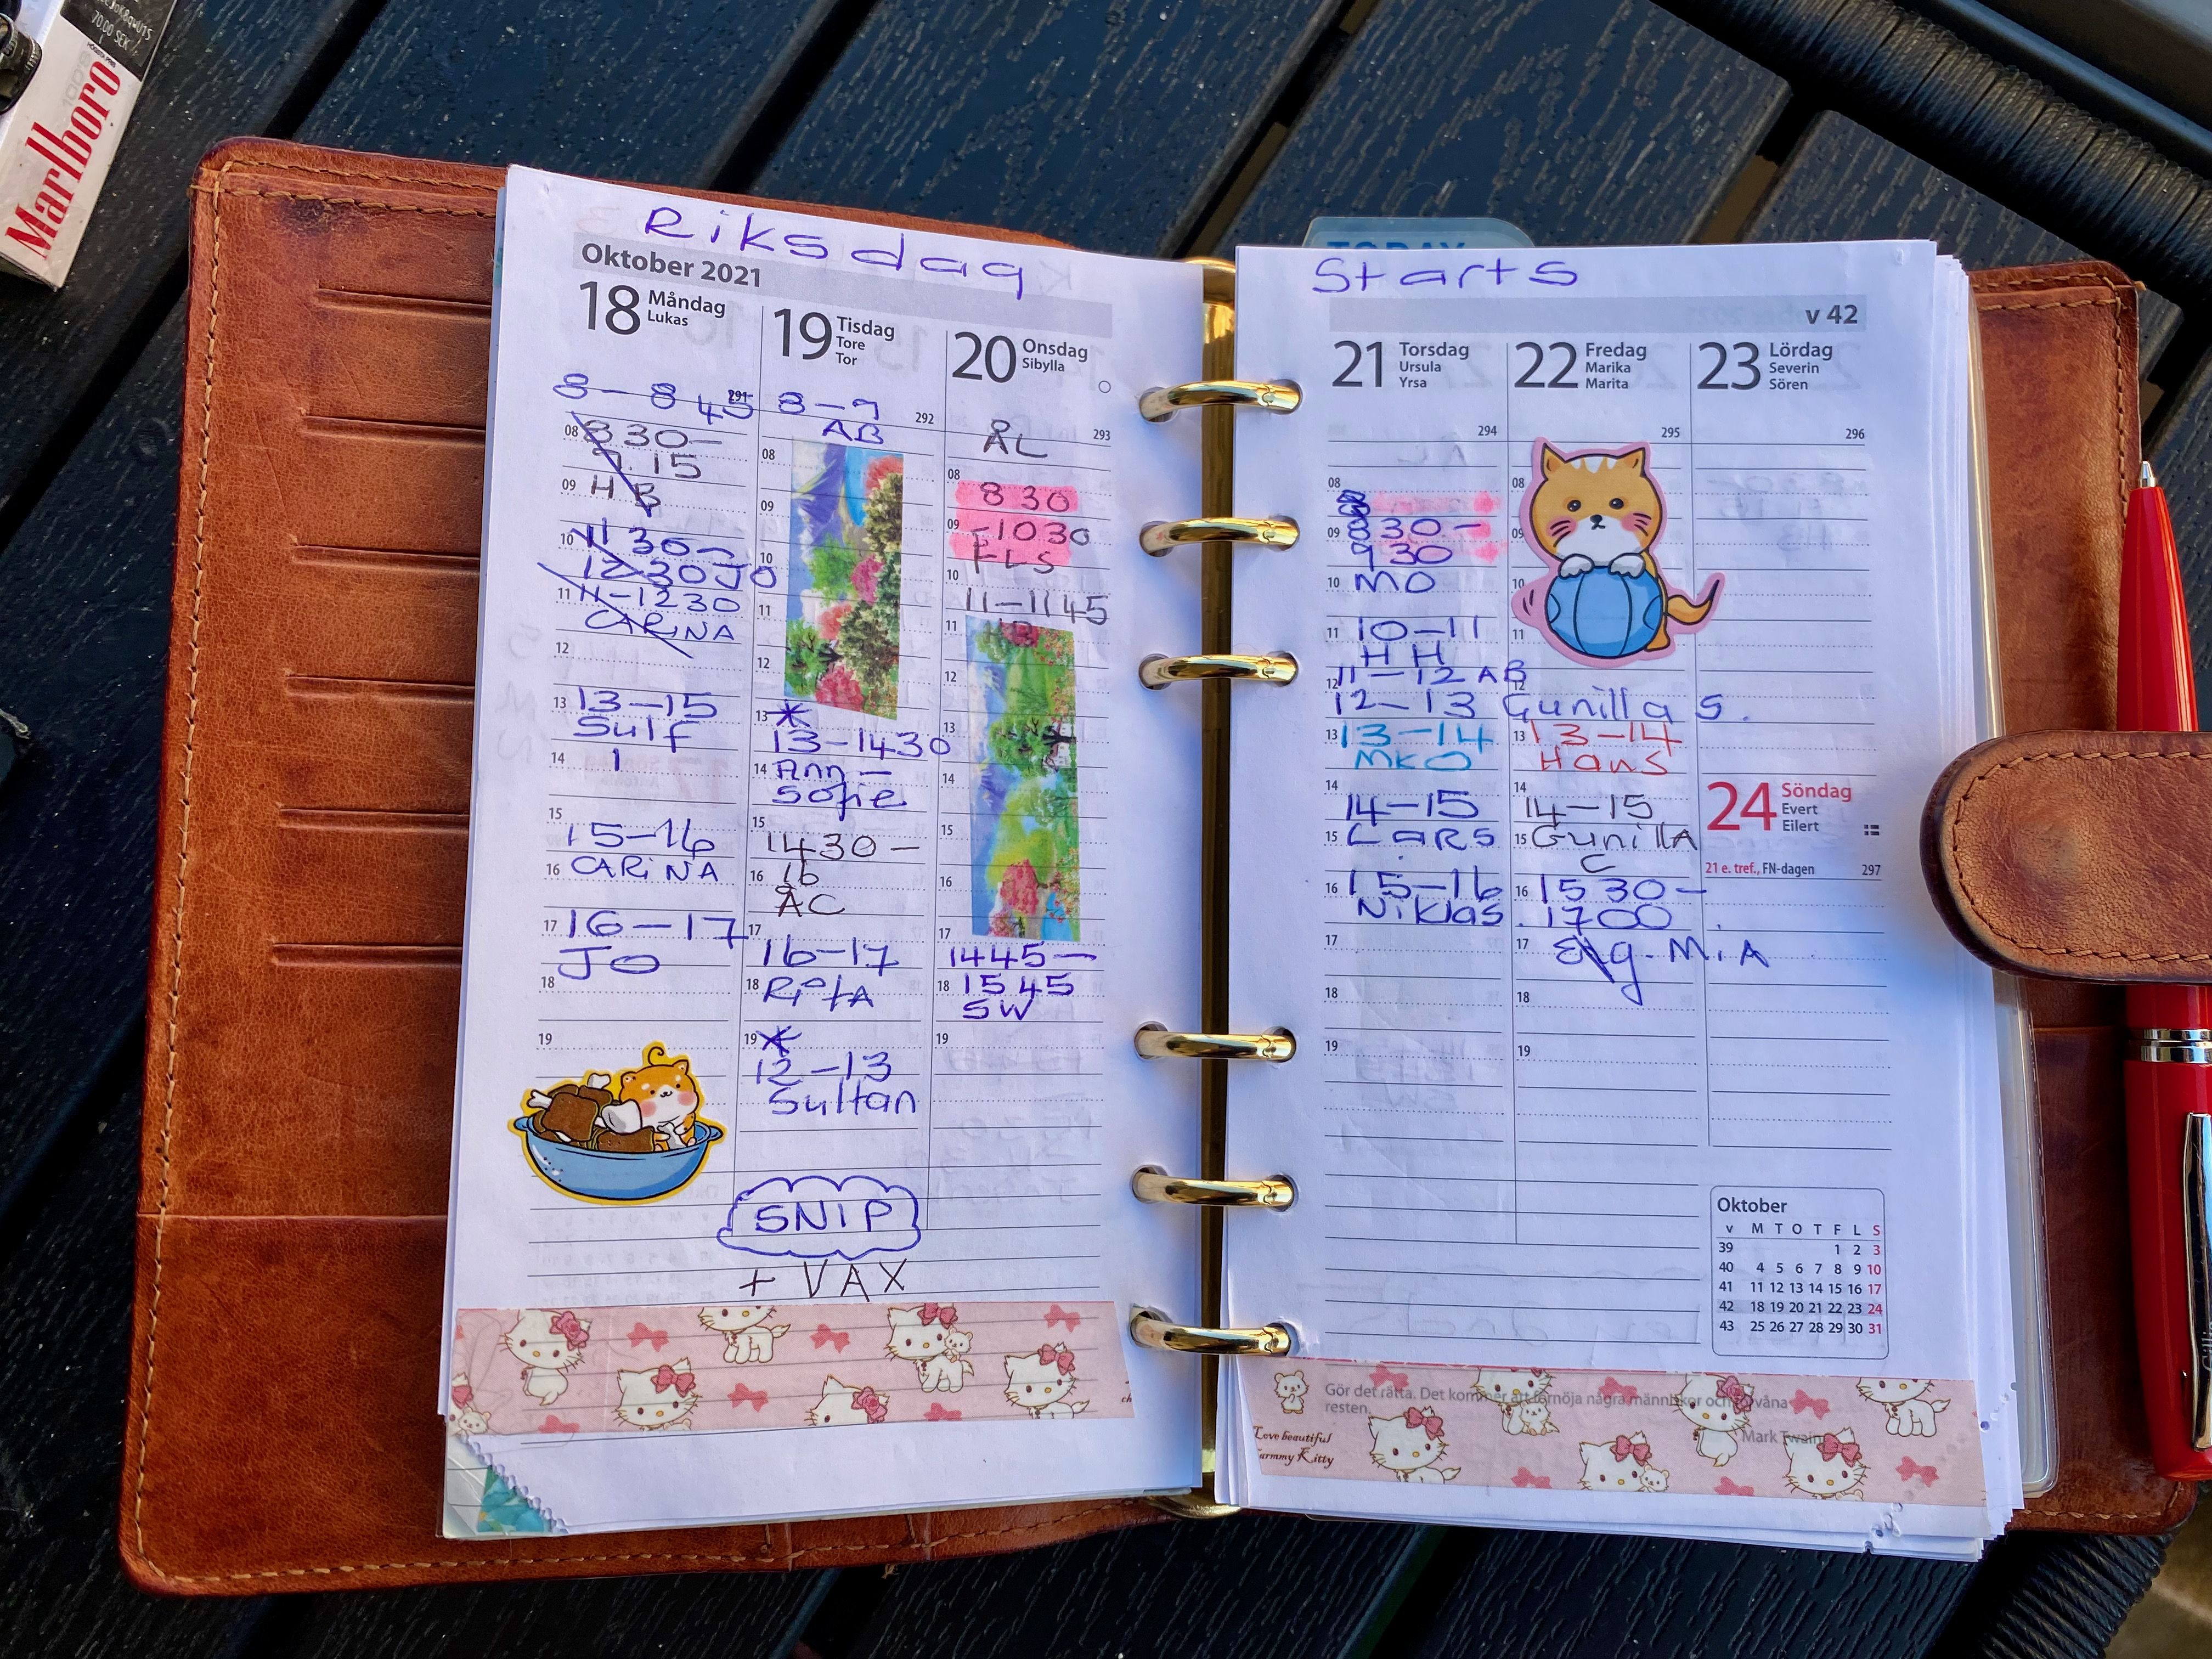 70.00 SEK
Marlboro
Riksdag
Oktober 2021
18 Måndag
Lukas
8-8 45 291
08 8 30-
9.15
09 H B
10 11 30-
12 30 JO
11 11-12 30
CARINA
12
13 13-15
Sulf
14 1
15 15-16
16 CARINA
17 16-17
JO
18
19
19 Tisdag
Tore
Tor
8-9 292
AB
08
09
10
11
12
13 *
13-1430
14 Ann-
Sofie
15
1430-
16 16
ÅC
17
16-17
18 RitA
19 *
12-13
Sultan
SNIP
+ VAX
20 Onsdag
Sibylla
293
ÅL
08
8 30
09 -10 30
FLS
10
11-11 45
11 HB
12
13
14
15
16
17
1445-
18 15 45
SW
19
TODAY
Starts
v 42
21 Torsdag
Ursula
Yrsa
294
08
09 8 30-
9 30
10 MO
11 10-11
H H
12 11-12 AB
12-13 Gunilla S.
13 13-14
MKO
14 14-15
15 LARS
16 15-16
Niklas
17
18
19
22 Fredag
Marika
Marita
295
08
09
10
11
12
13 13-14
Hans
14
14-15
15 GunillA
C
16 15 30-
1700
17 M.A
18
19
23 Lördag
Severin
Sören
296
24 Söndag
Evert
Eilert
21 e. tref., FN-dagen 297
Oktober
v M T O T F L S
39 1 2 3
40 4 5 6 7 8 9 10
41 11 12 13 14 15 16 17
42 18 19 20 21 22 23 24
43 25 26 27 28 29 30 31
Gör det rätta. Det kommer att förnöja några människor och förvåna
resten.
Mark Twain
Love beautiful
Kitty